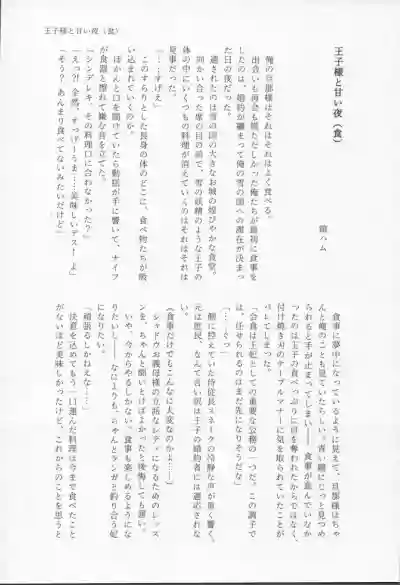 王子様と甘い夜（食）
王子様と甘い夜（食）
鏡ハム
俺の旦那様はそれはそれはよく食べる。
出会いも再会も慌ただしかった俺たちが最初に食事を
したのは、婚約が纏まって俺の雪の国への滞在が決まっ
た日の夜だった。
通されたのは雪の国の大きなお城の煌びやかな食堂。
向かい合った席の目の前で、雪の妖精のような王子の
体の中にいくつもの料理が消えていくのはそれはそれは
見事だった。
「……すげえ」
このすらりとした長身の体のどこに、食べ物たちが吸
い込まれていくのか。
ぽかんと口を開けていたら動揺が手に響いて、ナイフ
が食器と擦れて嫌な音を立てた。
「シンデレキ、その料理口に合わなかった？」
「えっ？！全然、すっげーうま……美味しいデスーよ」
「そう？あんまり食べてないみたいだけど」
食事に夢中になっているように見えて、旦那様はちゃ
んと俺のことも見ていたらしい。青い瞳にじっと見つめ
られると手が止まってしまい——食事が進んでいなか
ったのは王子の食べっぷりに目を奪われたからではなく、
付け焼き刃のテーブルマナーに気を取られていたことが
バレてしまった。
「会食は王妃としての重要な公務の一つだ。この調子で
は、任せられるのはまだ先になりそうだな」
「……ぐっ」
側に控えていた侍従長スネークの冷静な声が重く響く。
元は庶民、なんて言い訳は王子の婚約者には適応されな
い。
（食事だけでもこんなに大変なのかよ……）
シャドウお義母様の立派なレディになるためのレッス
ンを、ちゃんと聞いとけばよかったと後悔しても遅い。
いや、今からやるしかない。食事も楽しめるようにな
りたいし——なによりも、ちゃんとランガと釣り合う妃
になりたい。
「頑張るしかねえな……」
決意を込めてもう一口運んだ料理は今まで食べたこと
がないほど美味しかったけど、これからのことを思うと